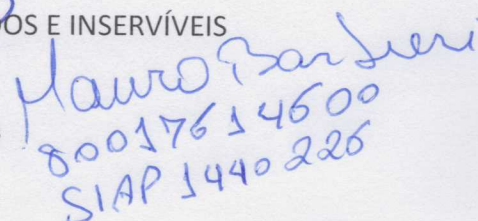 OS E INSERVÍVEIS
Mauro Barbieri
80017614600
SIAP 1440226